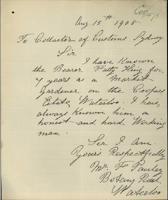 Aug 15th 1908
To Collector of Customs Sydney
Sir
I have Known
the Bearer
7 years as a Market
Gardener on the Coopers
Estate, Waterloo. I have
always Known him, a
honest and hard Working
man.
Sir I Am
Yours Respectfully
Mr
Botany Road
Waterloo